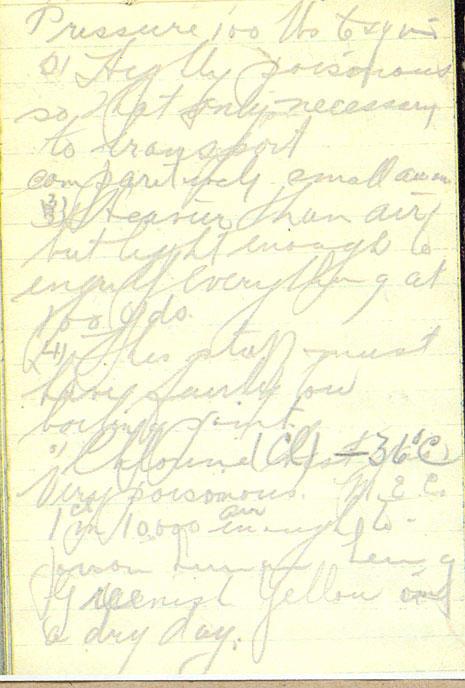 Pressure 100 lbs to sq in
2) Highly poisonous
so that only necessary
to transport
comparatively small amm
3) Heavier than air
but light enough to
engulf everything at
100 yds.
(4) This stuff must
have fairly low
boiling point.
1) Chlorine (Cl) - 36°C
Very poisonous.
1 in 10,000 air enough to
poison human being
Greenish yellow
a dry day.